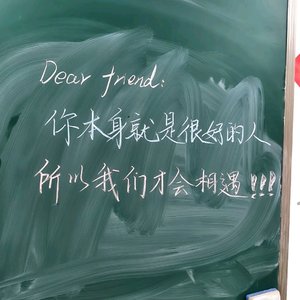 Dear friend:
你本身就是很好的人
所以我们才会相遇!!!